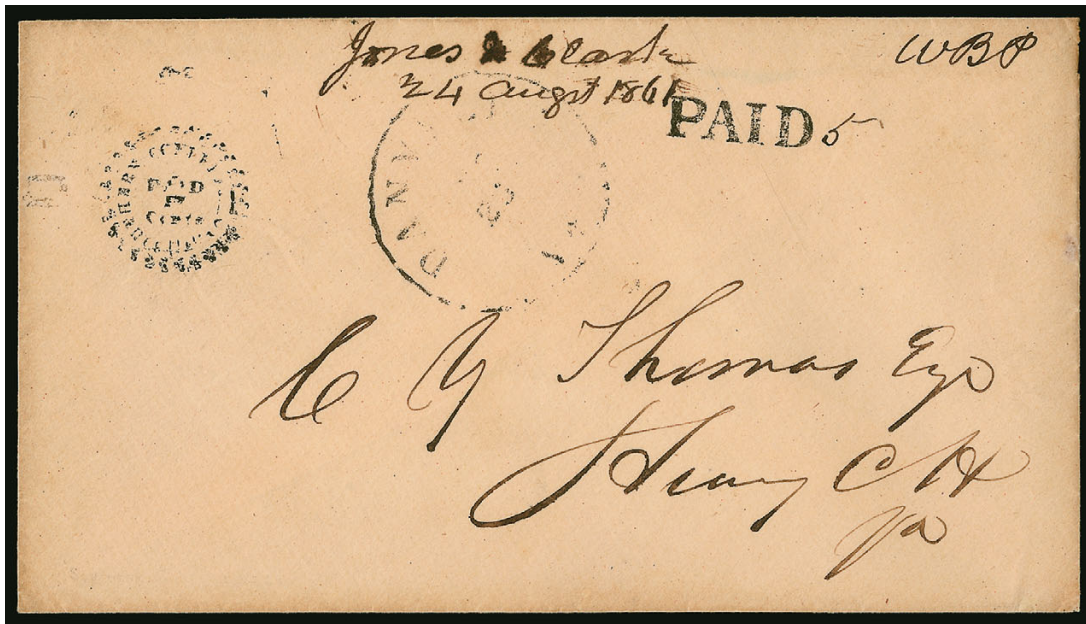 Jones & Clark
24 Augst 1861
WBP
PAID 5
PAID
Cents
DANV
C Y Thomas Esq
Henry C H
Va